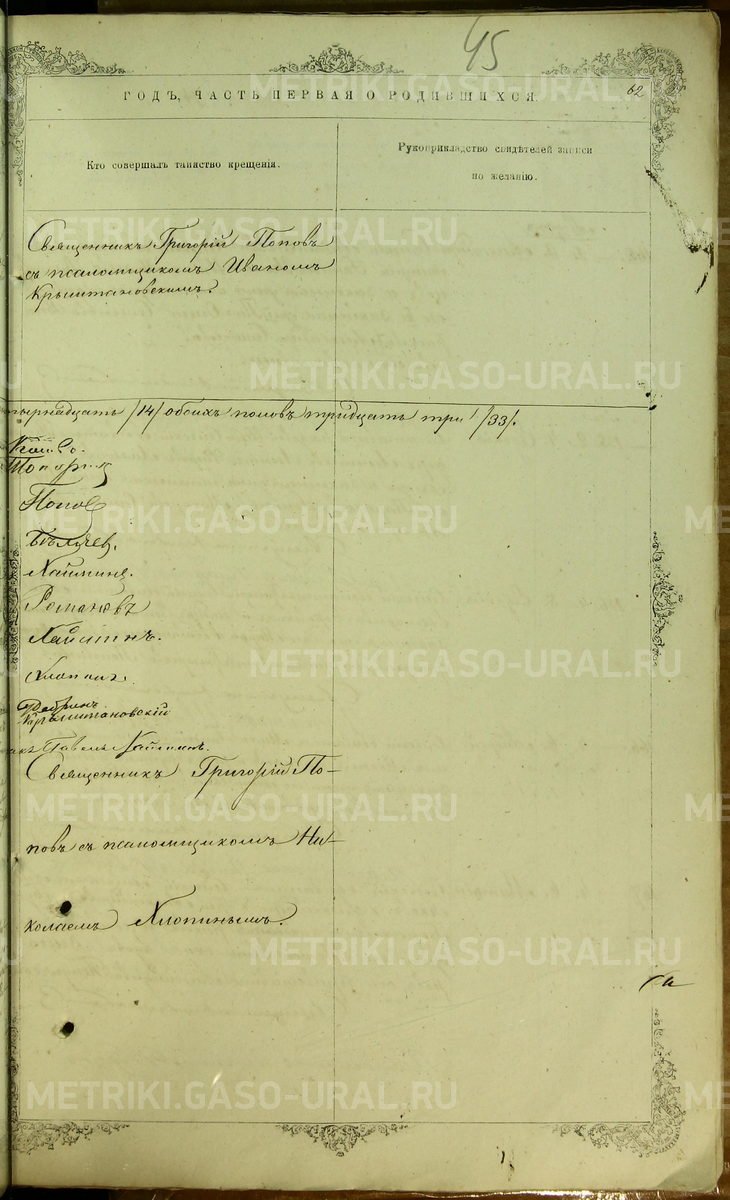 45
62
ГОДЪ, ЧАСТЬ ПЕРВАЯ О РОДИВШИХСЯ.
Кто совершалъ таинство крещенія.
Рукоприкладство свидѣтелей записи
по желанію.
Священникъ Григорій Поповъ
съ псаломщикомъ Иваномъ
Крыштановскимъ.
тырнадцать /14/ обоихъ половъ тридцать три /33/.
Попов
Бѣляев.
Романовъ
Хлопинъ.
Крыштановскій
Павелъ
Священникъ Григорій По-
повъ съ псаломщикомъ Ни-
колаемъ Хлопинымъ.
METRIKI.GASO-URAL.RU